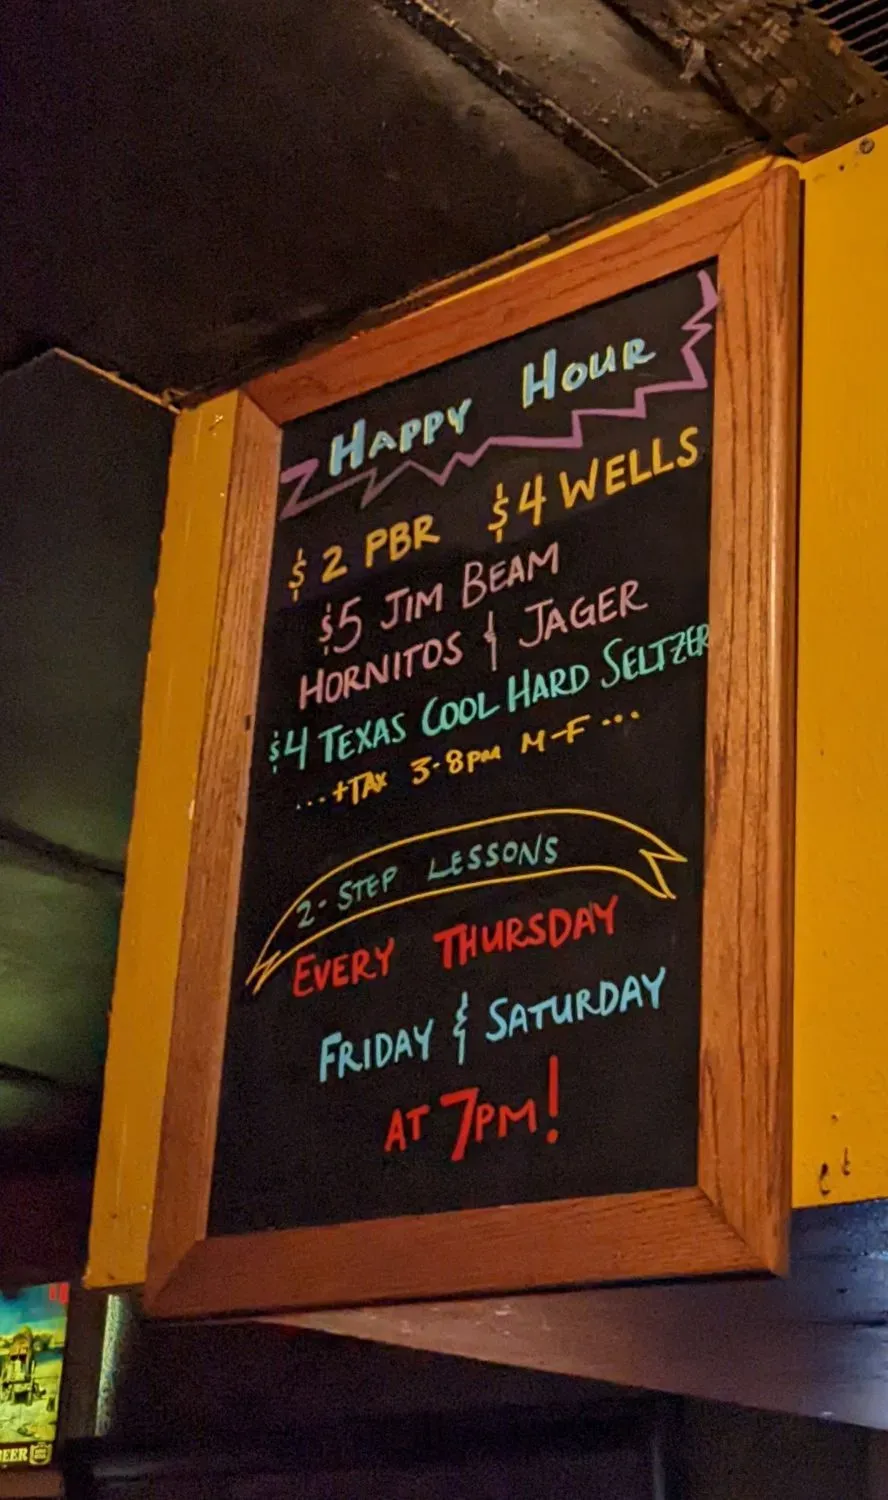 HAPPY HOUR
$2 PBR $4 WELLS
$5 JIM BEAM
HORNITOS & JAGER
$4 TEXAS COOL HARD SELTZER
...+TAX 3-8pm M-F...
2-STEP LESSONS
EVERY THURSDAY
FRIDAY & SATURDAY
AT 7PM!
BEER